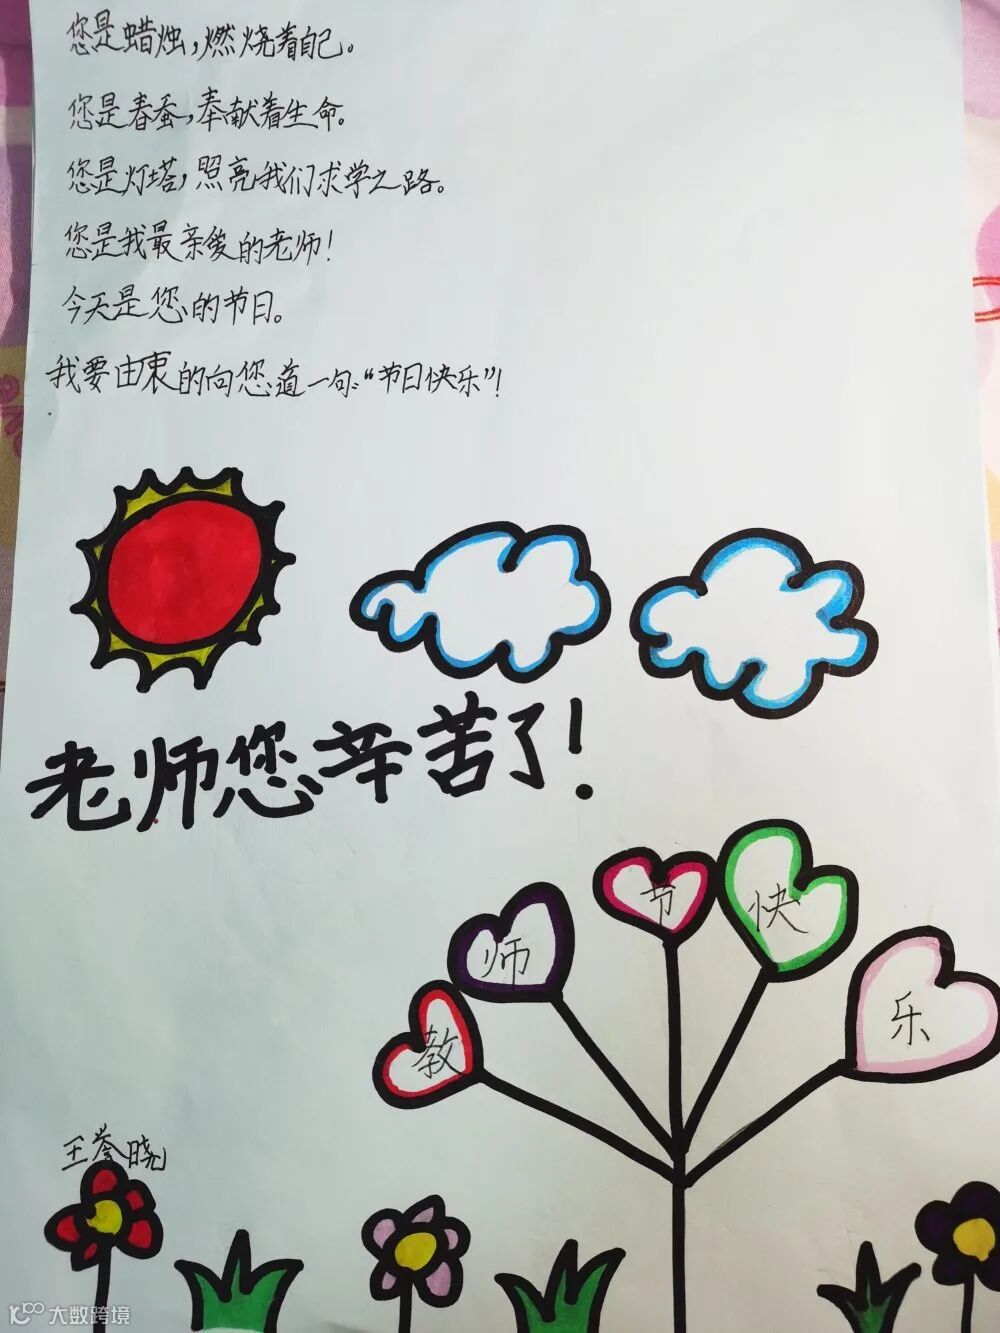 您是蜡烛，燃烧着自己。
您是春蚕，奉献着生命。
您是灯塔，照亮我们求学之路。
您是我最亲爱的老师！
今天是您的节日。
我要由衷的向您道一句“节日快乐”！
老师您辛苦了！
教师节快乐
王誉晓
大数跨境